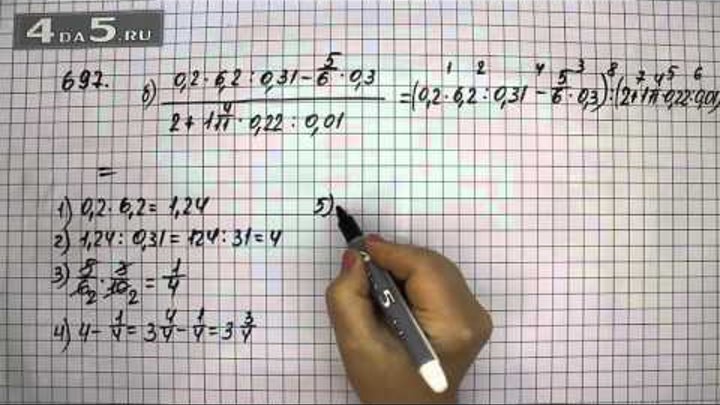 4DA5.RU
697.
б) 0,2·6,2:0,31-5/6·0,3 / 2+1 4/11·0,22:0,01 = (0,2·6,2:0,31-5/6·0,3):(2+1 4/11·0,22:0,01)
1 2 4 3 8 7 5 6
=
1) 0,2·6,2=1,24
2) 1,24:0,31=124:31=4
3) 5/6·3/10=1/4
2 2
4) 4-1/4=3 4/4-1/4=3 3/4
5)
5